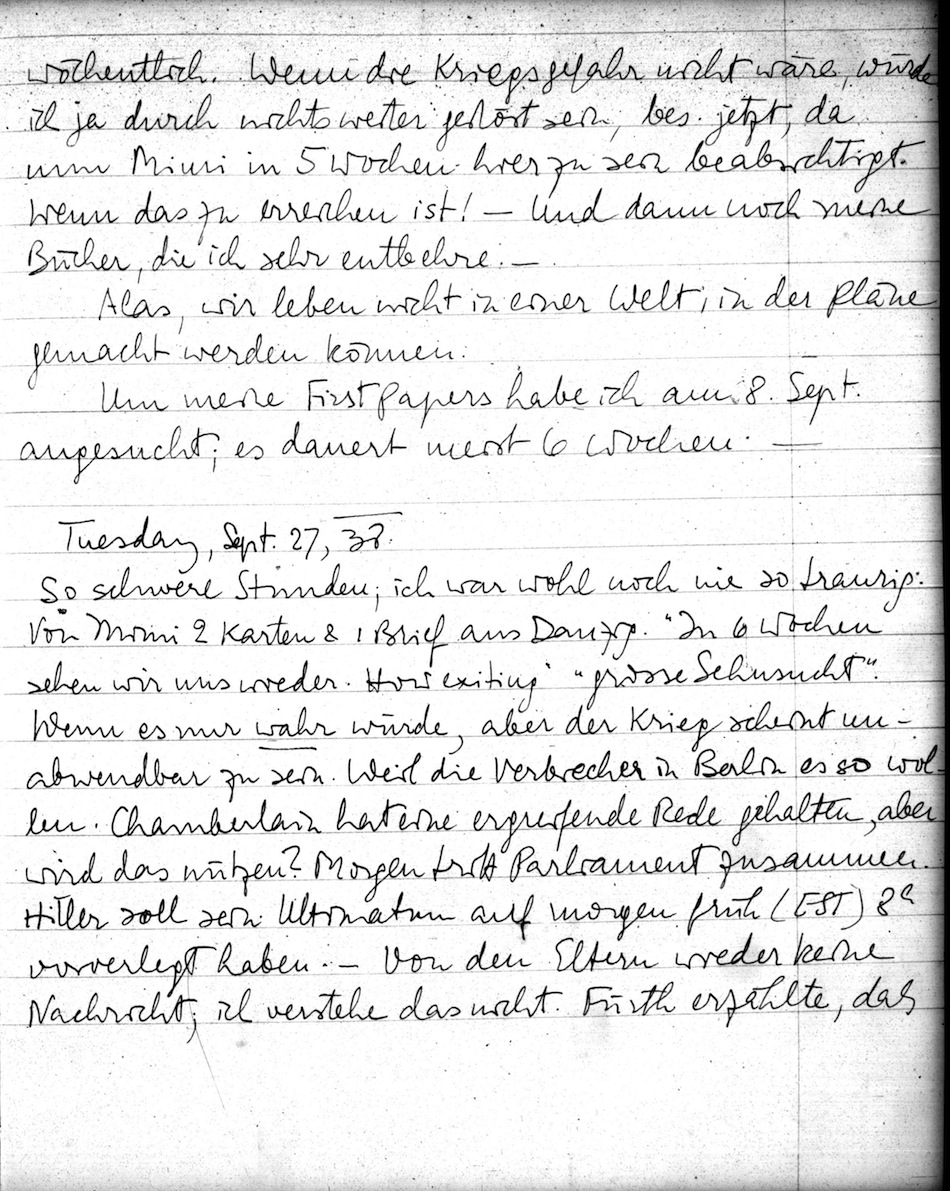 wöchentlich. Wenn die Kriegsgefahr nicht wäre, würde
ich ja durch nichts weiter gestört sein, bes. jetzt, da
nun Mimi in 5 Wochen hier zu sein beabsichtigt.
Wenn das zu erreichen ist! — Und dann noch meine
Bücher, die ich sehr entbehre. —
Alas, wir leben nicht in einer Welt, in der Pläne
gemacht werden können.
Um meine First Papers habe ich am 8. Sept.
angesucht; es dauert meist 6 Wochen. —
Tuesday, Sept. 27, 38.
So schwere Stunden; ich war wohl noch nie so traurig.
Von Mimi 2 Karten & 1 Brief aus Danzig. "In 6 Wochen
sehen wir uns wieder. How exiting" "grosse Sehnsucht".
Wenn es nur wahr würde, aber der Krieg scheint un-
abwendbar zu sein. Weil die Verbrecher in Berlin es so wol-
len. Chamberlain hat eine ergreifende Rede gehalten, aber
wird das nützen? Morgen tritt Parliament zusammen.
Hitler soll sein Ultimatum auf morgen früh (EST) 8h
vorverlegt haben. — Von den Eltern wieder keine
Nachricht; ich verstehe das nicht. Fürth erzählte, daß